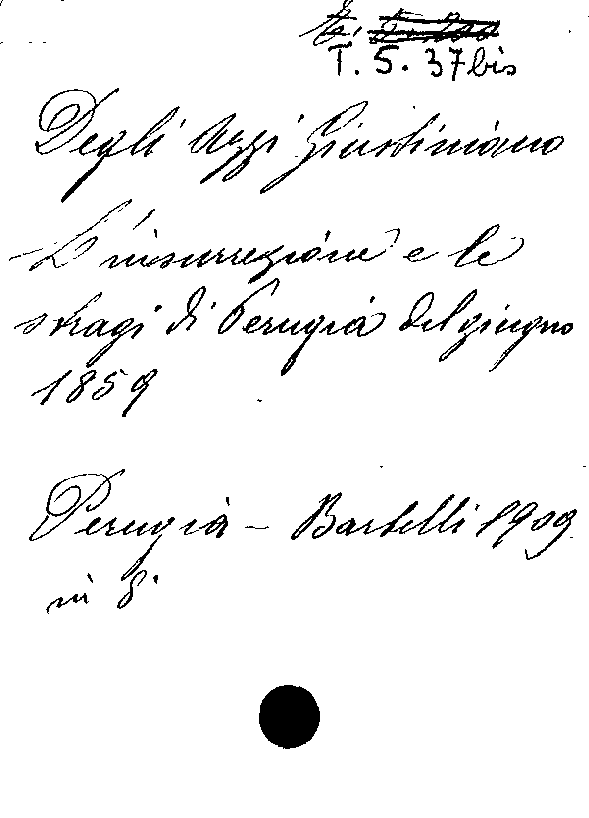 T. 5. 37 bis
Degli Azzi Giustiniano
L'insurrezione e le
stragi di Perugia del giugno
1859
Perugia – Bartelli 1909
in 8°